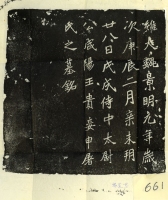 維大魏景明元年歲
次庚辰二月癸未朔
廿八日戊戌侍中太尉
公咸陽王貴妾申屠
氏之墓銘
661